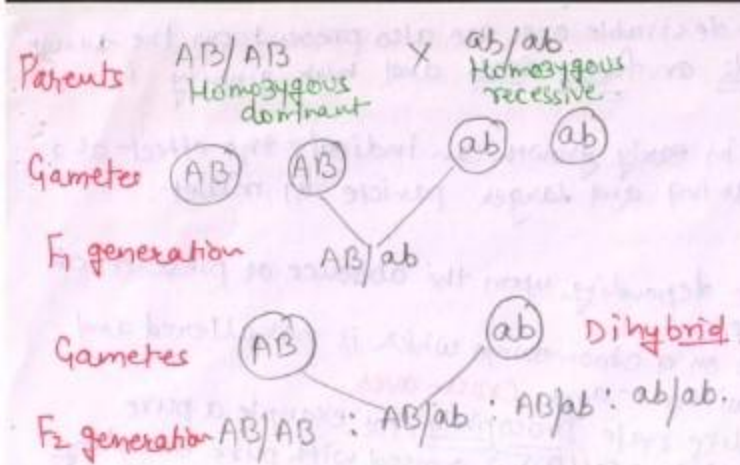 Parents AB/AB X ab/ab
Homozygous dominant Homozygous recessive.
Gametes AB AB ab ab
F1 generation AB/ab
Gametes AB ab Dihybrid
F2 generation AB/AB : AB/ab : AB/ab : ab/ab.